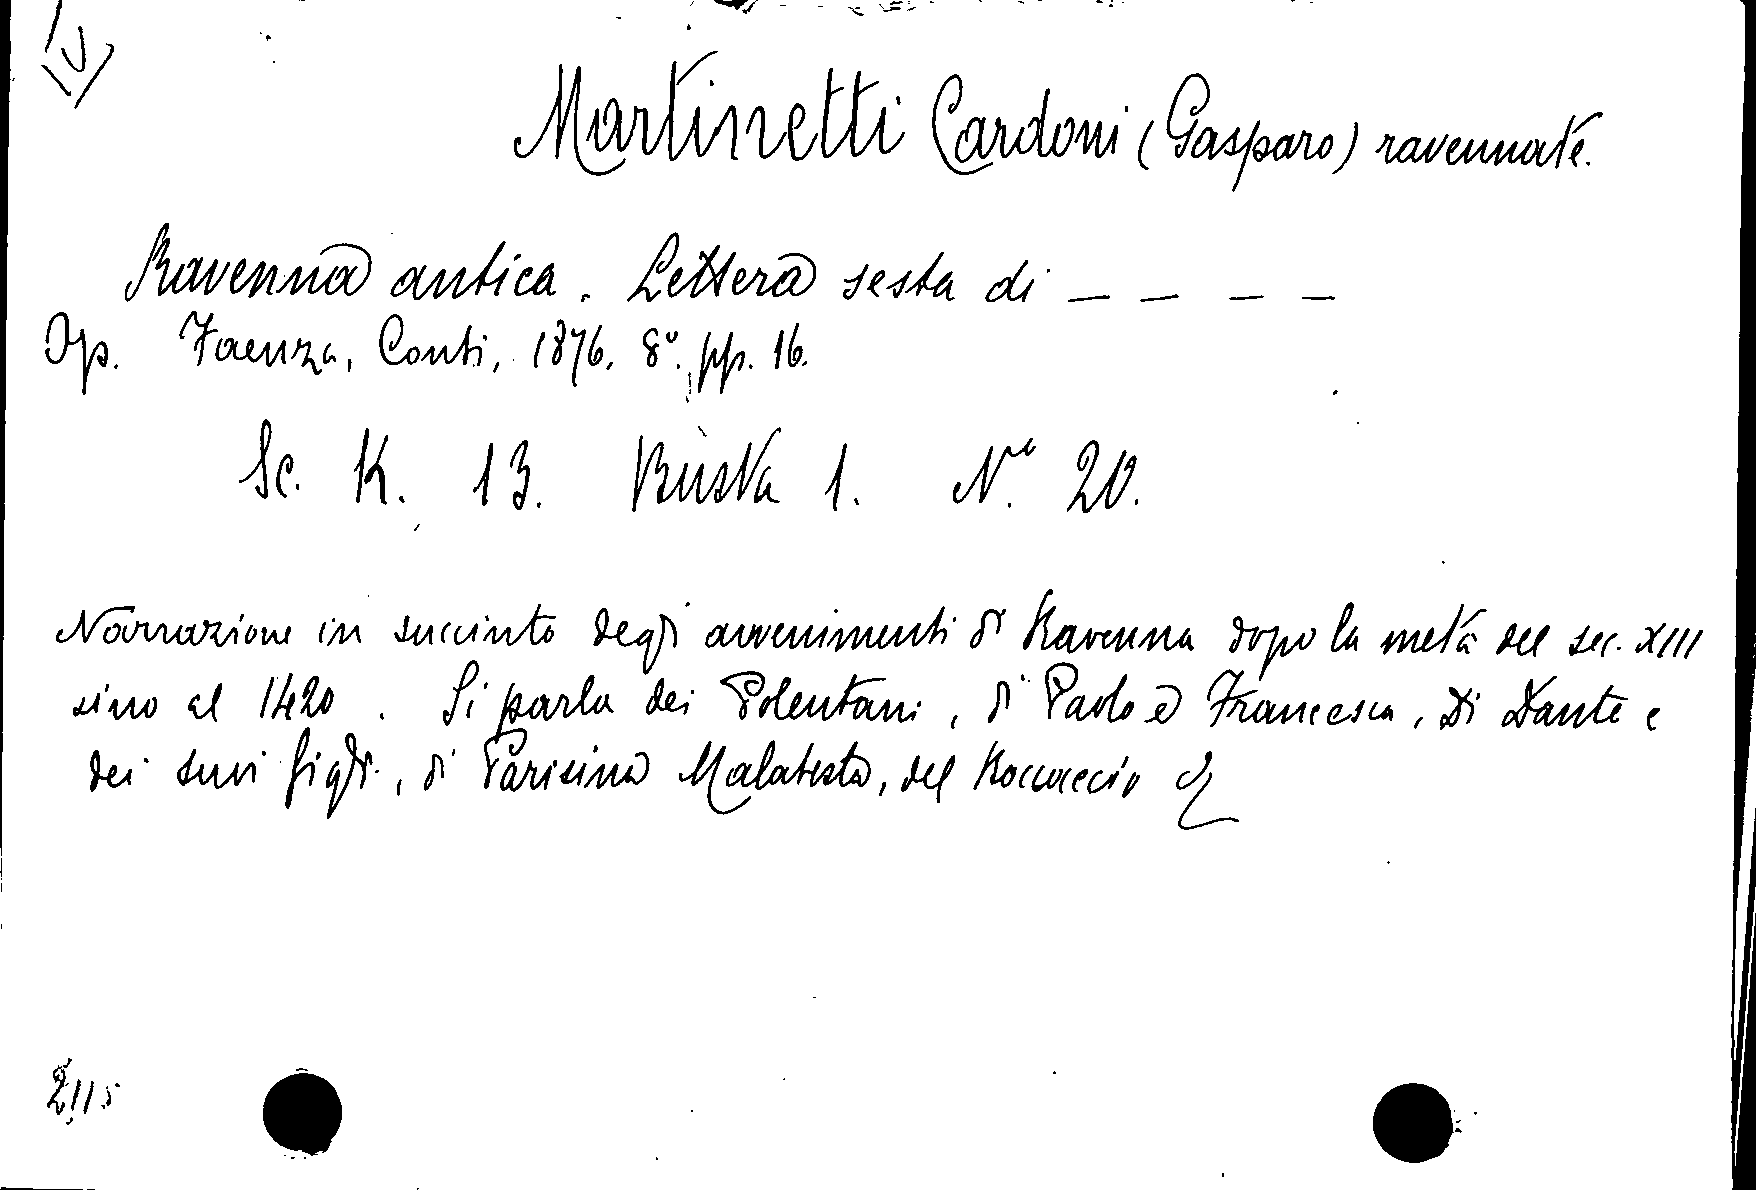 Martinetti Cardoni (Gasparo) ravennate.
Ravenna antica. Lettera sesta di _ _ _ _
Op. Faenza, Conti, 1876. 8º. pp. 16.
Sc. K. 13. Busta 1. N.º 20.
Narrazione in succinto degli avvenimenti di Ravenna dopo la metà del sec. XIII
sino al 1420. Si parla dei Polentani, di Paolo e Francesca, di Dante e
dei suoi figli, di Parisina Malatesta, del Boccaccio
2115